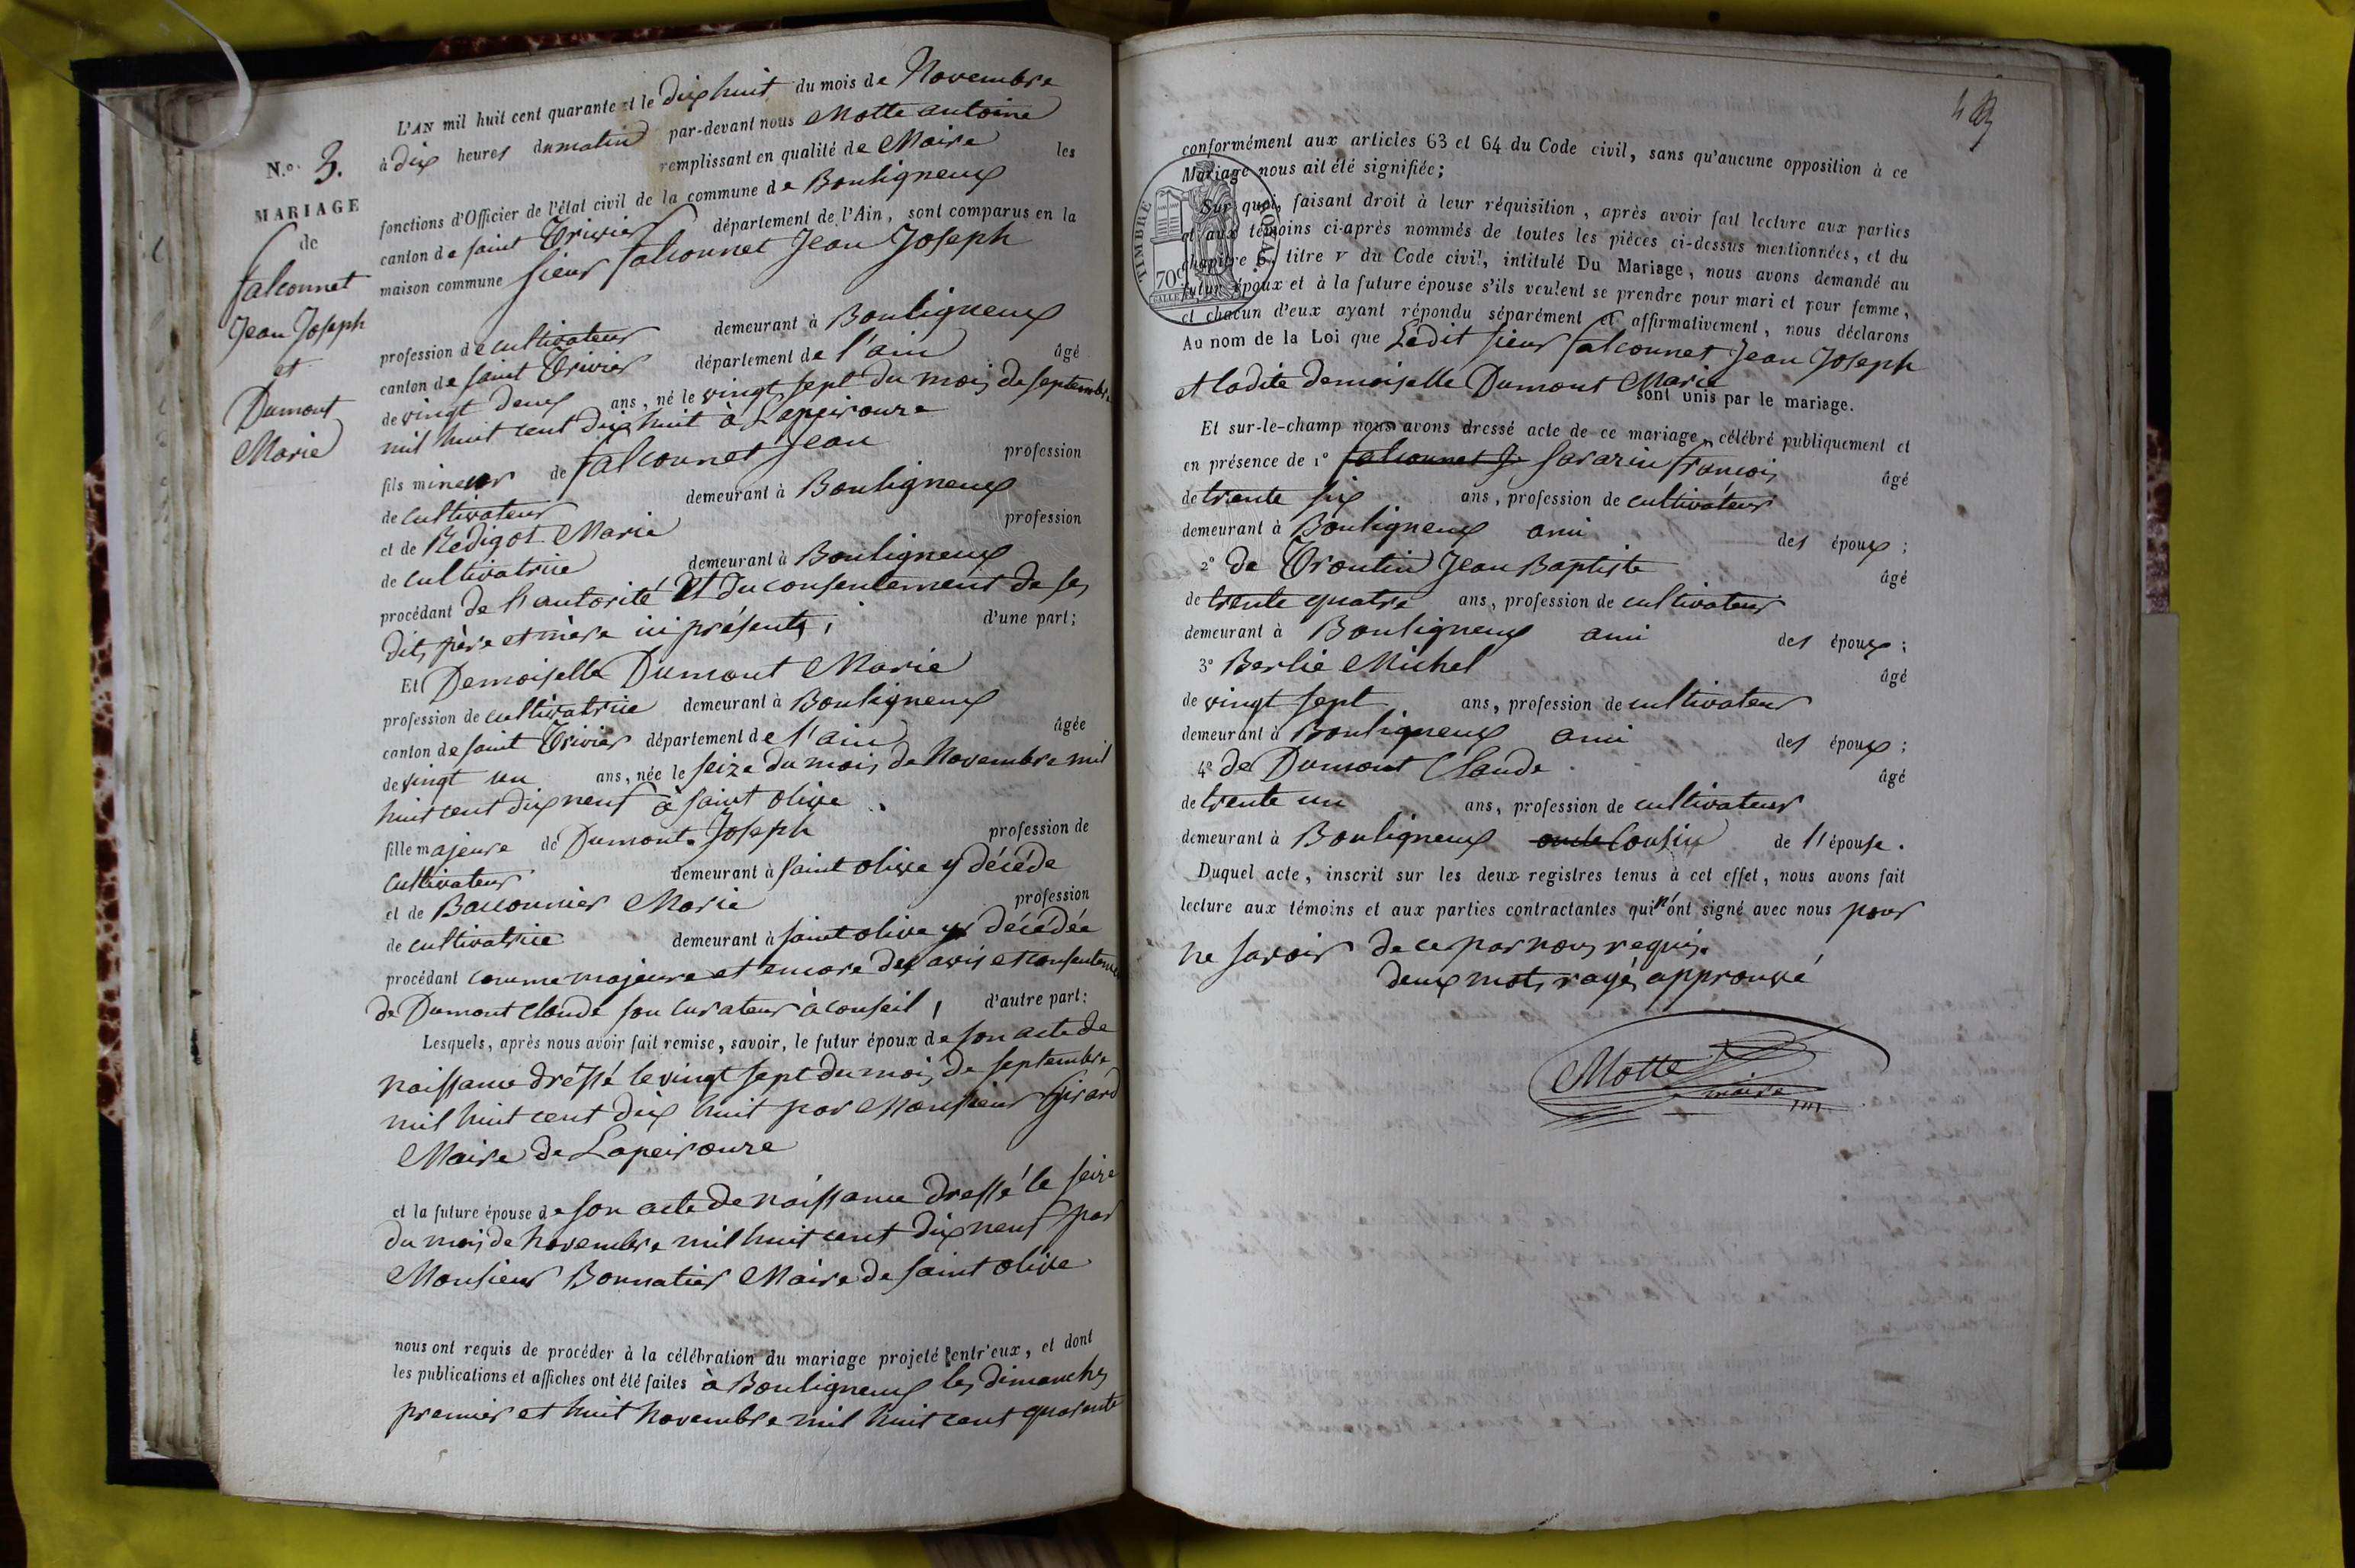 N.o. 3.
MARIAGE
de
falconnet
Jean Joseph
et
Dumont
Marie
L'AN mil huit cent quarante et le dix huit du mois de Novembre
à dix heures du matin par-devant nous Motte antoine
remplissant en qualité de Maire les
fonctions d'Officier de l'état civil de la commune de Bouligneux
canton de saint Trivier département de l'Ain, sont comparus en la
maison commune sieur falconnet Jean Joseph
profession de cultivateur demeurant à Bouligneux
canton de saint Trivier département de l'ain âgé
de vingt deux ans, né le vingt sept du mois de septembre
mil huit cent dix huit à Lapeirouze
fils mineur de falconnet Jean profession
de cultivateur demeurant à Bouligneux
et de Bedigot Marie profession
de cultivatrice demeurant à Bouligneux
procédant de l'autorité et du consentement de ses
dits père et mère ici présents; d'une part;
Et Demoiselle Dumont Marie
profession de cultivatrice demeurant à Bouligneux
canton de saint Trivier département de l'ain âgée
de vingt un ans, née le seize du mois de Novembre mil
huit cent dix neuf à saint olive
fille majeure de Dumont Joseph profession de
cultivateur demeurant à saint olive y décéde
et de Baconnier Marie profession
de cultivatrice demeurant à saint olive y décédée
procédant comme majeure et encore des avis et consentement
de Dumont claude son curateur à conseil, d'autre part:
Lesquels, après nous avoir fait remise, savoir, le futur époux de son acte de
naissance dressé le vingt sept du mois de septembre
mil huit cent dix huit par Monsieur Girard
Maire de Lapeirouze
et la future épouse de son acte de naissance dressé le seize
du mois de novembre mil huit cent dix neuf par
Monsieur Bonnatier Maire de saint olive
nous ont requis de procéder à la célébration du mariage projeté entr'eux, et dont
les publications et affiches ont été faites à Bouligneux les dimanches
premier et huit novembre mil huit cent quarante
conformément aux articles 63 et 64 du Code civil, sans qu'aucune opposition à ce
Mariage nous ait été signifiée;
TIMBRE ROYAL
70c
Sur quoi, faisant droit à leur réquisition, après avoir fait lecture aux parties
et aux témoins ci-après nommés de toutes les pièces ci-dessus mentionnées, et du
chapitre 6, titre v du Code civil, intitulé Du Mariage, nous avons demandé au
futur époux et à la future épouse s'ils veulent se prendre pour mari et pour femme,
et chacun d'eux ayant répondu séparément et affirmativement, nous déclarons
Au nom de la Loi que Ledit sieur falconnet Jean Joseph
et ladite demoiselle Dumont Marie
sont unis par le mariage.
Et sur-le-champ nous avons dressé acte de ce mariage, célébré publiquement et
en présence de 1° falconnet J. Savarin françois âgé
de trente six ans, profession de cultivateur
demeurant à Bouligneux ami des époux;
2° de Trontin Jean Baptiste âgé
de trente quatre ans, profession de cultivateur
demeurant à Bouligneux ami des époux;
3° Berlie Michel âgé
de vingt sept ans, profession de cultivateur
demeurant à Bouligneux ami des époux;
4° de Dumont Claude âgé
de trente un ans, profession de cultivateur
demeurant à Bouligneux oncle Cousin de l'épouse.
Duquel acte, inscrit sur les deux registres tenus à cet effet, nous avons fait
lecture aux témoins et aux parties contractantes qui n'ont signé avec nous pour
ne savoir de ce par nous requis.
deux mots rayés approuvé
Motte
maire